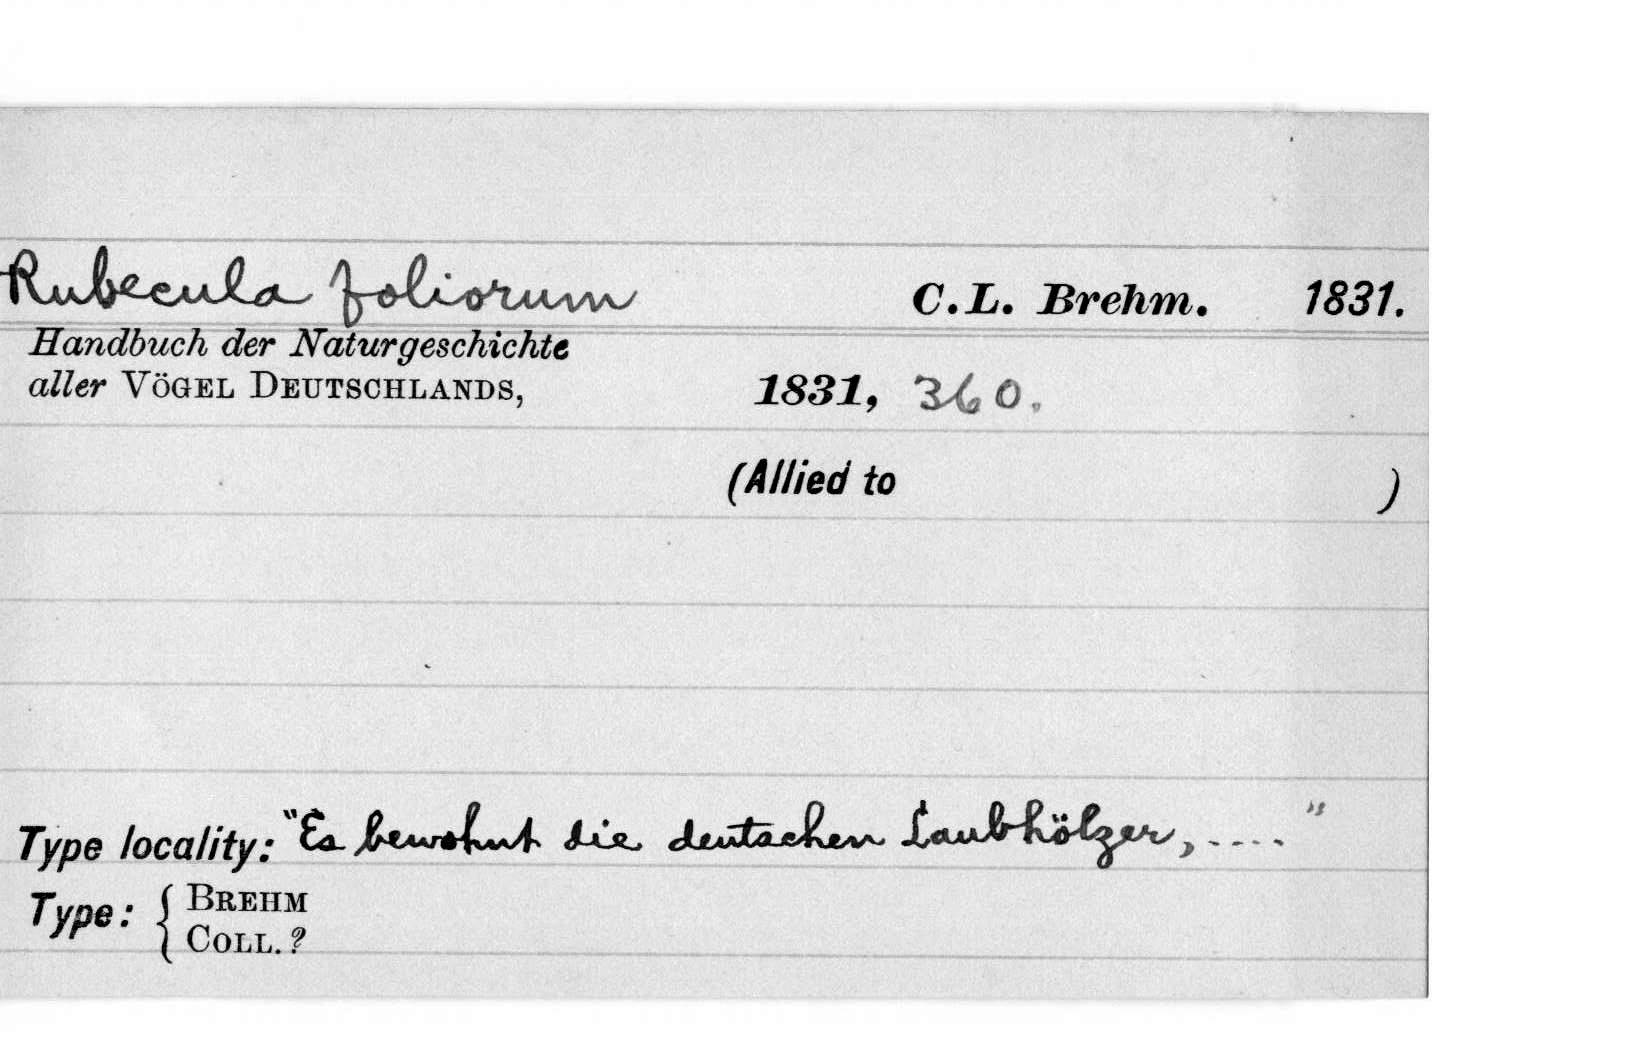 Rubecula foliorum C.L. Brehm. 1831.
Handbuch der Naturgeschichte
aller VÖGEL DEUTSCHLANDS, 1831, 360.
(Allied to )
Type locality: "Es bewohnt die deutschen Laubhölzer, ...."
Type: { BREHM
COLL. ?